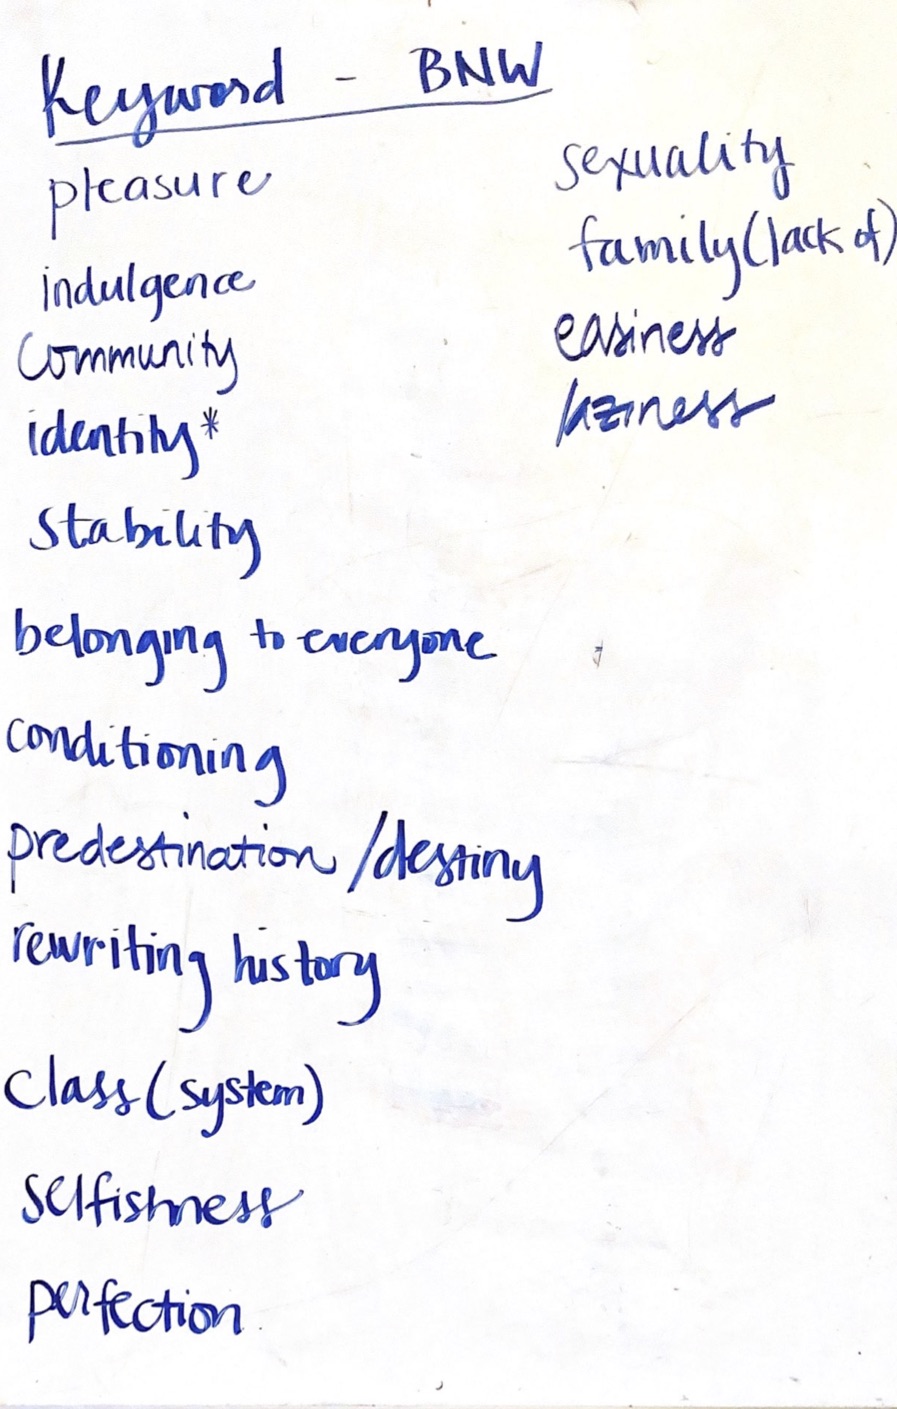 Keyword - BNW
pleasure
indulgence
Community
identity*
Stability
belonging to everyone
conditioning
predestination/destiny
rewriting history
Class (system)
selfishness
perfection
sexuality
family (lack of)
easiness
laziness